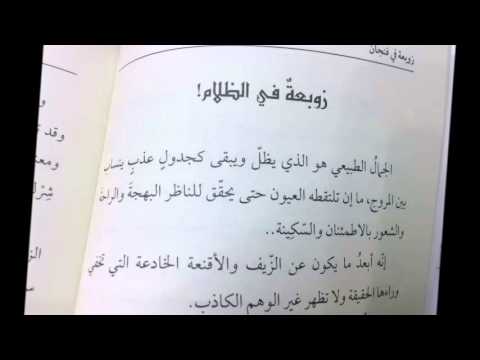 زوبعة في فنجان
زوبعةٌ في الظلام!
الجمالُ الطبيعي هو الذي يظلّ ويبقى كجدولٍ عذبٍ ينساب
بين المروج، ما إن تلتقطه العيون حتى يحقّق للناظر البهجةَ والراحةَ
والشعور بالاطمئنان والسّكِينة..
إنّه أبعدُ ما يكون عن الزّيف والأقنعة الخادعة التي تخفي
وراءها الحقيقة ولا تظهر غير الوهم الكاذب.
وقد